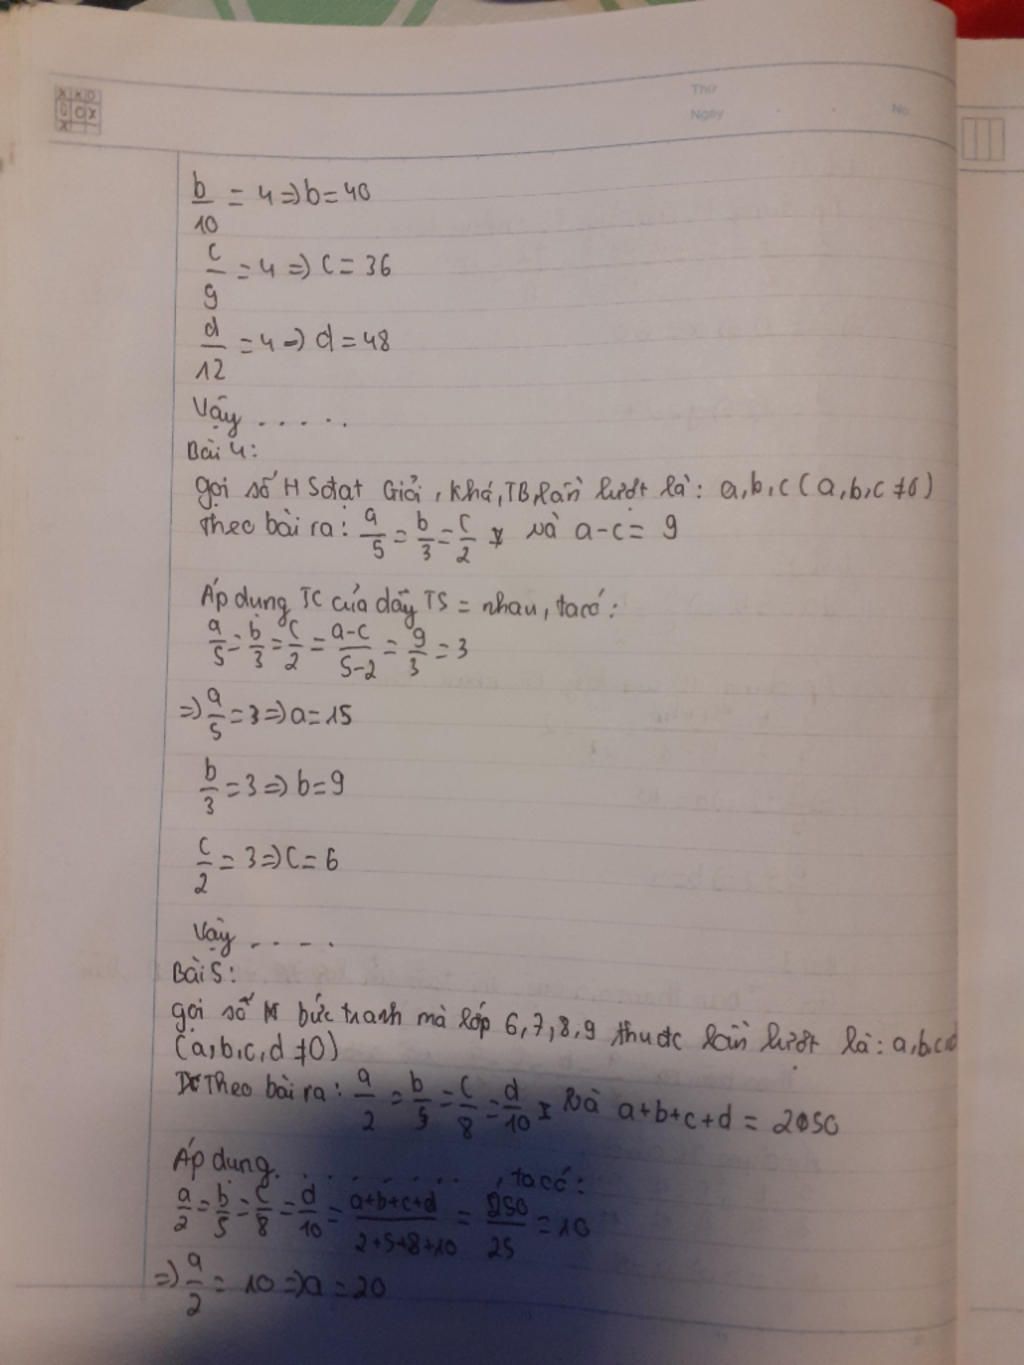 Thứ
Ngày . . No.
b/10 = 4 => b = 40
c/9 = 4 => c = 36
d/12 = 4 => d = 48
Vậy .....
Bài 4:
gọi số HS đạt Giỏi, Khá, TB, lần lượt là: a, b, c (a, b, c ≠ 0)
Theo bài ra: a/5 = b/3 = c/2 và a - c = 9
Áp dụng TC của dãy TS = nhau, ta có:
a/5 = b/3 = c/2 = a-c/5-2 = 9/3 = 3
=> a/5 = 3 => a = 15
b/3 = 3 => b = 9
c/2 = 3 => c = 6
Vậy .....
Bài 5:
gọi số bức tranh mà lớp 6, 7, 8, 9 thuộc lần lượt là: a, b, c, d
(a, b, c, d ≠ 0)
Theo bài ra: a/2 = b/5 = c/8 = d/10 và a + b + c + d = 250
Áp dụng .........., ta có:
a/2 = b/5 = c/8 = d/10 = a+b+c+d/2+5+8+10 = 250/25 = 10
=> a/2 = 10 => a = 20